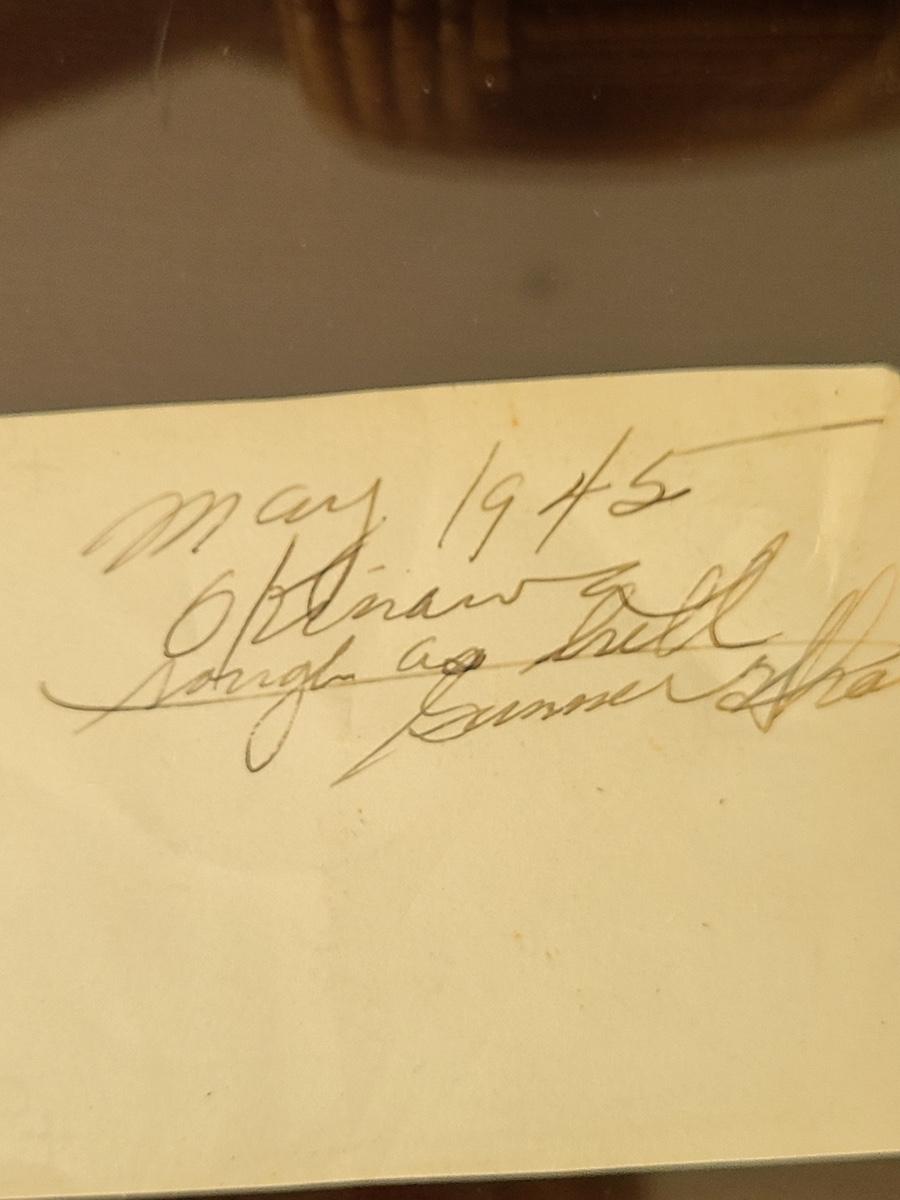 May 1945
Okinawa
rough as hell
Gunner